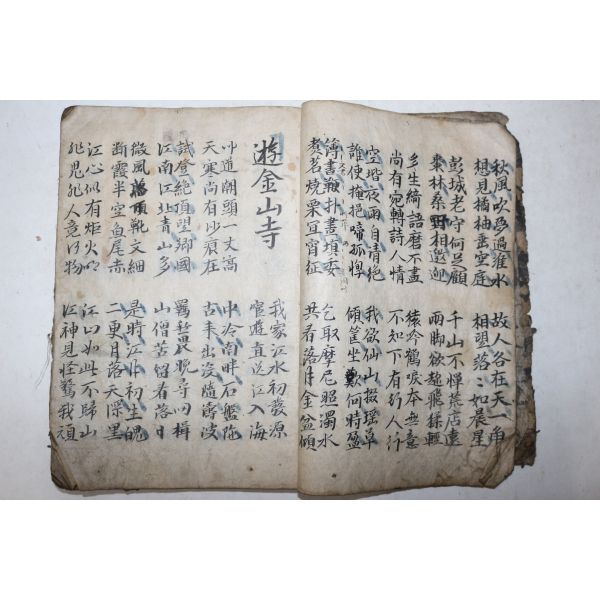 秋風吹夢過淮水
想見橘柚垂空庭
故人各在天一角
相望落々如晨星
彭城老守何足顧
棗林桑野相邀迎
千山不憚荒店遠
兩脚欲趁飛猱輕
多生綺語磨不盡
尚有宛轉詩人情
猿吟鶴唳本無意
不知下有行人行
空階夜雨自清絕
誰使掩抱啼孤惸
我欲仙山掇瑤草
傾筐坐歎何時盈
簿書鞭扑晝填委
煮茗燒栗宜宵征
乞取摩尼照濁水
共看落月金盆傾
遊金山寺
我家江水初發源
宦遊直送江入海
道潮頭一丈高
天寒尚有沙痕在
中泠南畔石盤陀
古來出沒隨濤波
試登絕頂望鄉國
江南江北青山多
羇愁畏晚尋歸楫
山僧苦留看落日
微風靴文細
斷霞半空魚尾赤
是時江月初生魄
二更月落天深黑
江心似有炬火明
非鬼非人竟何物
江山如此不歸山
江神見怪驚我頑